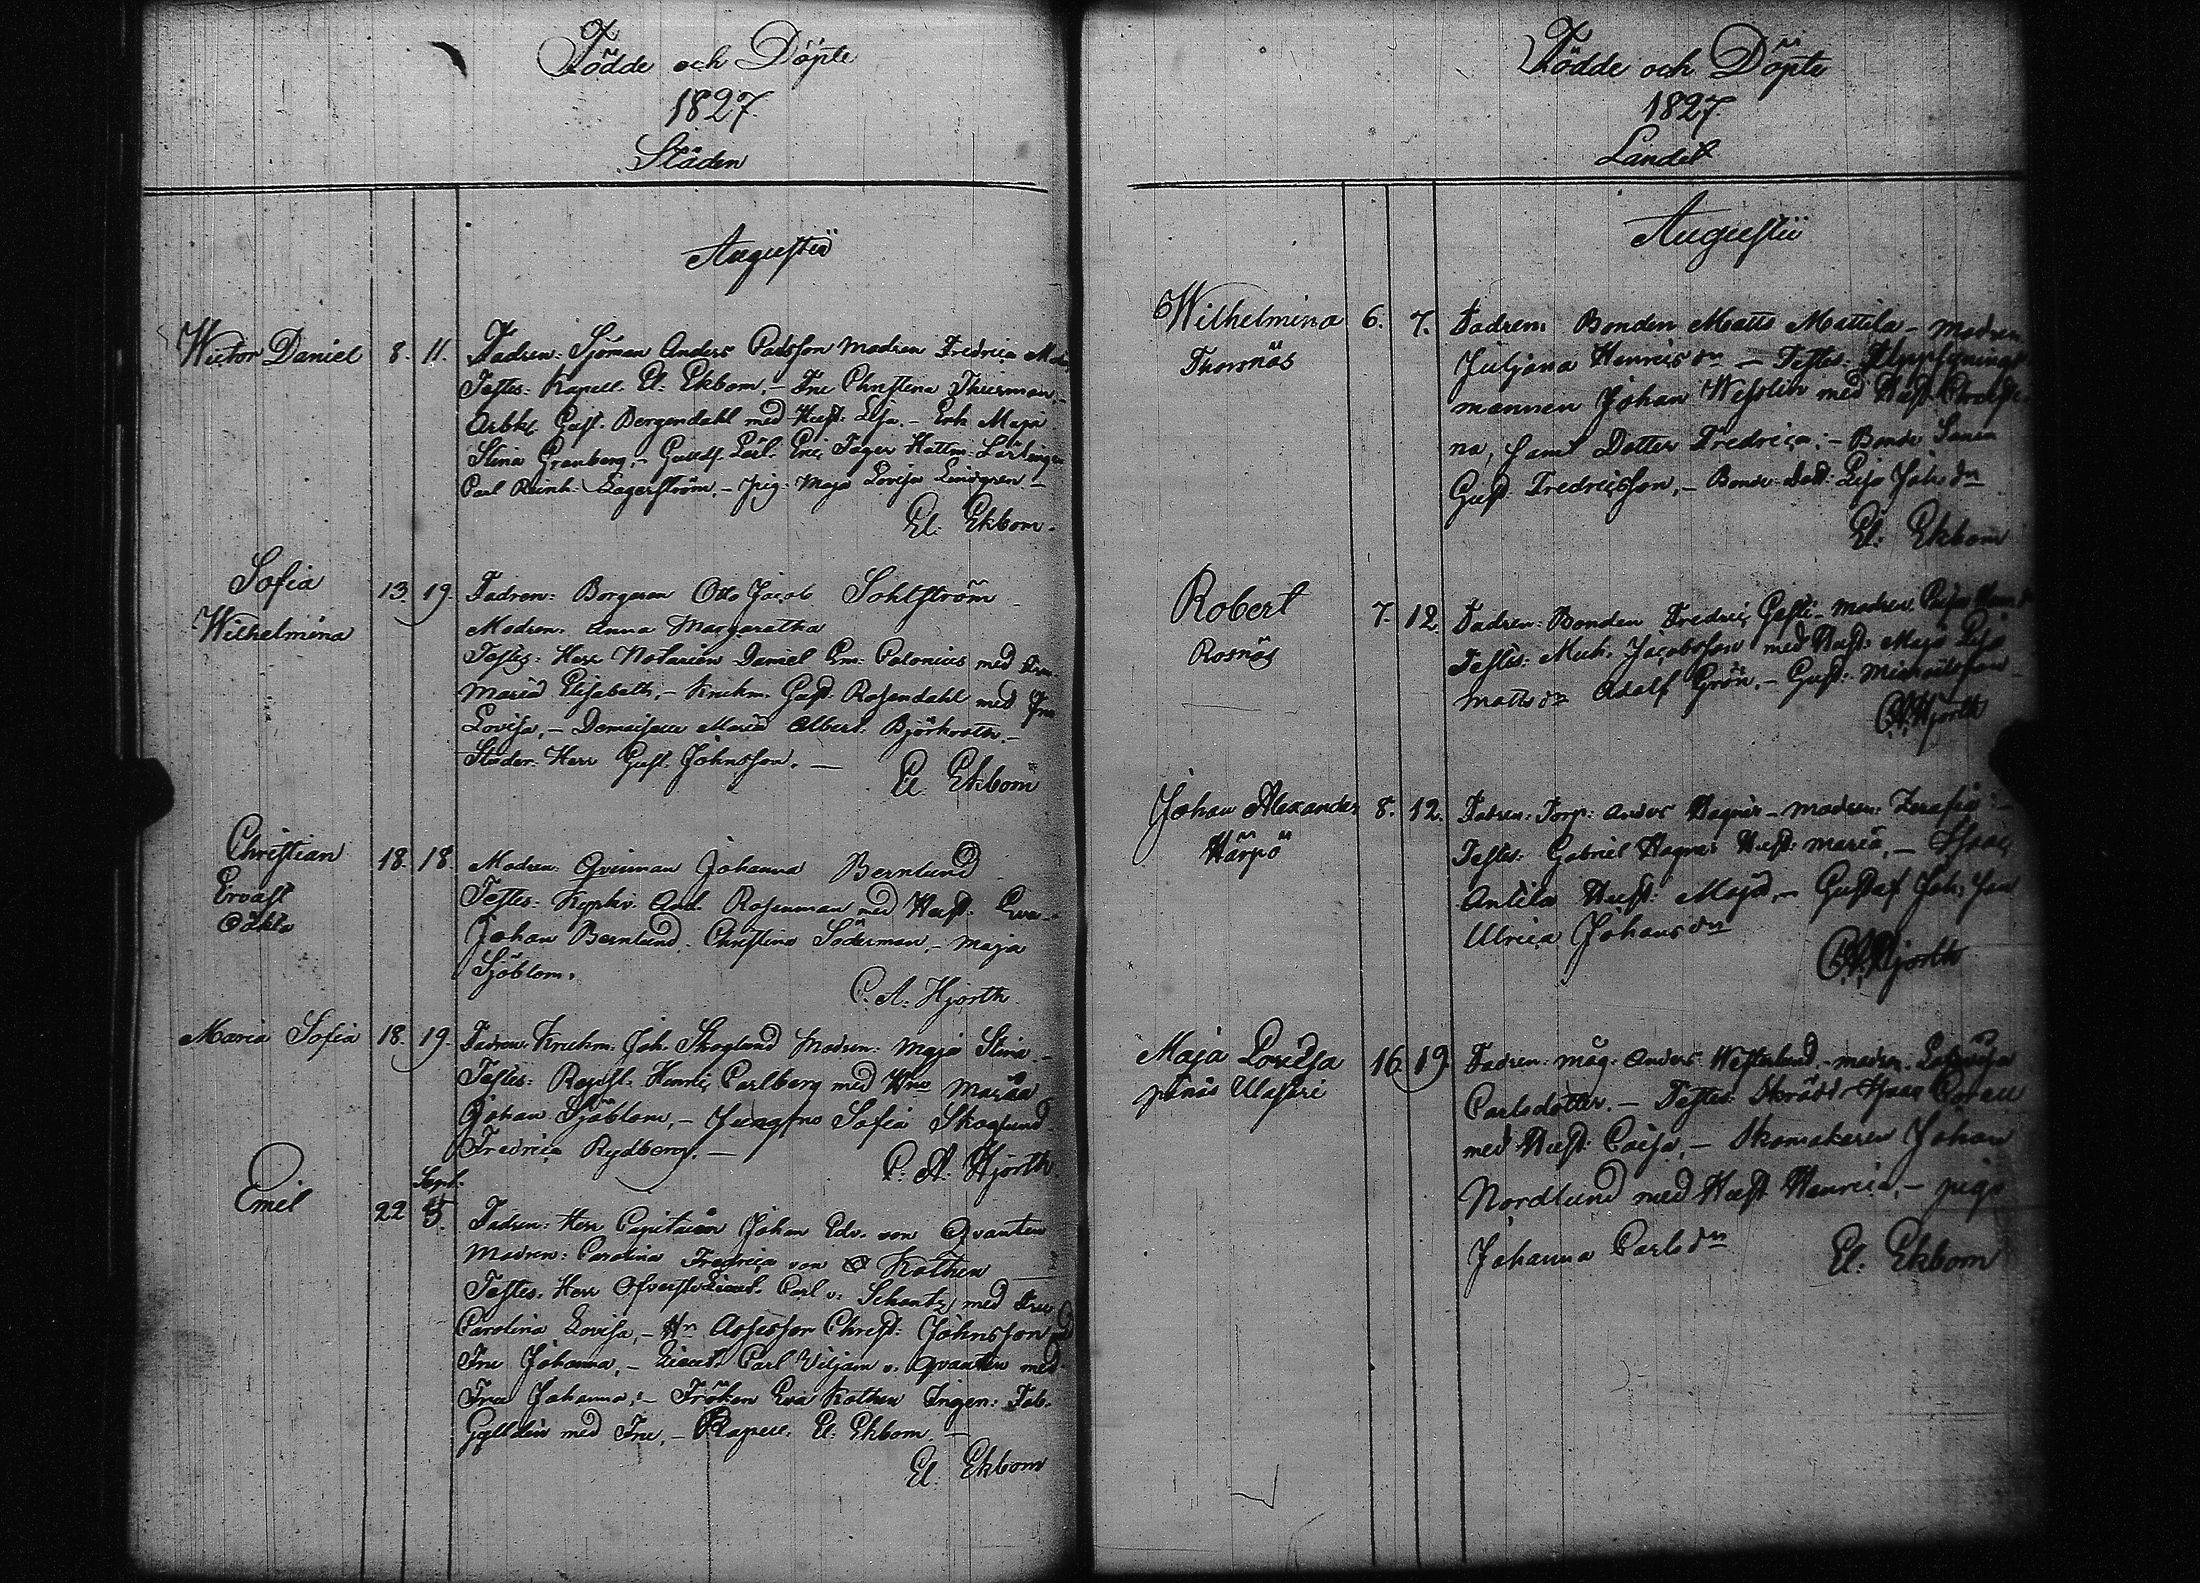 Födde och Döpte
1827.
Staden
Augustii
Wictor Daniel 8. 11. Fadren: Sjöman Anders Carlsson Modren Fredrica
Testes: Kapell. El. Ekbom, - Fru Christina Thurman, -
Arbk. Gust. Bergendahl med Hust: Lisa. - Enk. Maja
Stina Granberg, - Guldsm. Lärl. Eric Fager Hattm. Lärlingen
Carl Reinh. Lagerström. - pig: Maja Lovisa Lindgren. -
El. Ekbom.
Sofia 13. 19. Fadren: Borgaren Otto Jacob Sohlström
Wilhelmina Modren: Anna Margaretha
Testes: Herr Notarien Daniel Em: Polonius med Fru
Maria Elisabeth, - Kruhm. Gust. Rosendahl med Fru
Lovisa, - Demoiselle Maria Albert. Björkroth. -
Studer. Herr Gust. Johnsson. -
El. Ekbom
Christian 18. 18. Modren: Qvinman Johanna Bernlund
Ervast Testes: And. Rosenman med Hust: Eva -
oäkta Johan Bernlund. Christina Söderman, - Maja
Sjöblom.
C. A. Hjorth.
Maria Sofia 18. 19. Fadren Kruhm: Joh. Skoglund Modren: Maja Stina. -
Testes: Henric Carlberg med Hu Maria
Johan Sjöblom, - Jungfru Sofia Skoglund
Fredrica Rydberg. -
C. A. Hjorth.
Sept.
Emil 22 5. Fadren: Herr Capitain Johan Edv. von Qvanten
Modren: Carolina Fredrica von Kothen
Testes. Herr Öfverste Lieut. Carl v. Schantz med Fru
Carolina Lovisa, - Hn Assessor Christ: Johnsson med
Fru Johanna, - Lieut. Carl Viljam v. Qvanten med
Fru Johanna, - Fröken Eva Kothen Ingen: Fab.
Gylldén med Fru, - Kapell. El. Ekbom. -
El. Ekbom
Födde och Döpte
1827.
Landet
Augustii
Wilhelmina 6. 7. Fadren: Bonden Matts Mattila - Modren
Thornäs Juljana Henricsdr - Testes:
mannen Johan Wesslin med Hust. Christi
na, samt Dotter Fredrica; - Bonde Sonen
Gust. Fredricsson, - Bonde Dott: Lisa Johsdr
El. Ekbom
Robert 7. 12. Fadren: Bonden Fredric Modren Caisa
Rosnäs Testes: Mich. Jacobsson med Hust: Maja Lisa
Mattsdr Adolf Grön, - Gust. Michailsson
C. A. Hjorth
Johan Alexander 8. 12. Fadren: Torp: Anders Hagner - Modren: Serafia -
Härpö Testes: Gabriel Hagner Hust: Maria, - Isaac
Antila Hust: Maja, - Gustaf Joh. Son
Ulrica Johansdr
C. A. Hjorth
Maja Lovisa 16. 19. Fadren. Måg. Anders Westerlund - Modren
Carlsdotter. - Testes: Skrädd. Isaac
med Hust. Caisa, - Skomakaren Johan
Nordlund med Hust Henrica, - piga
Johanna Carlsdr
El. Ekbom